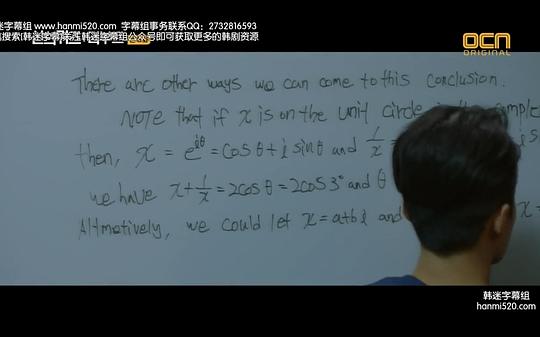 迷字幕组 www.hanmi520.com 字幕组事务联系QQ：2732816593
搜索(韩迷字幕)关注韩迷字幕组公众号即可获取更多的韩剧资源
OCN
ORIGINAL
There are other ways we can come to this conclusion.
NOTE that if x is on the unit circle
then, x = e^{iθ} = cosθ + i sinθ and 1/x =
we have x + 1/x = 2cosθ = 2cos3° and θ
Altrnatively, we could let x = a+bi and
韩迷字幕组
hanmi520.com